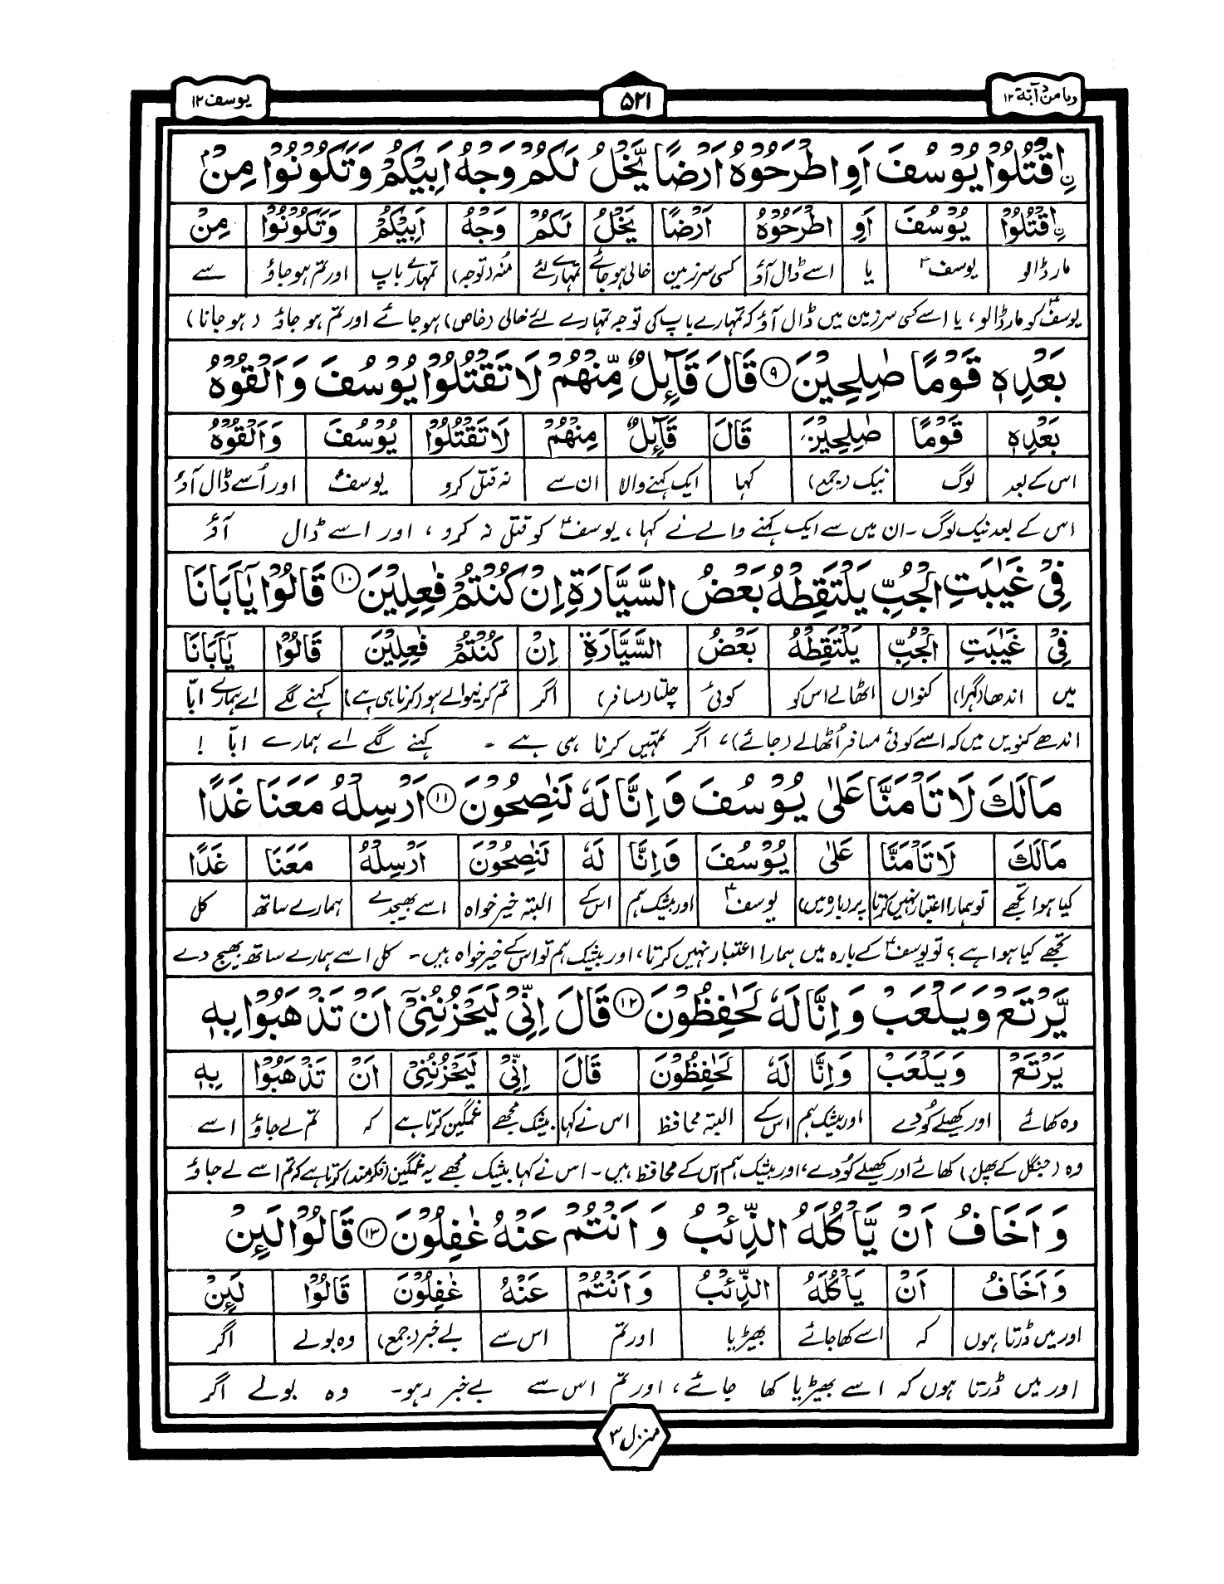 وما من دآبة ۱۲
۵۲۱
یوسف ۱۲
اِ۟قْتُلُوْا يُوْسُفَ اَوِ اطْرَحُوْهُ اَرْضًا يَّخْلُ لَكُمْ وَجْهُ اَبِيْكُمْ وَتَكُوْنُوْا مِنْۢ
اِ۟قْتُلُوْا يُوْسُفَ اَوِ اطْرَحُوْهُ اَرْضًا يَخْلُ لَكُمْ وَجْهُ اَبِيْكُمْ وَتَكُوْنُوْا مِنْ
مار ڈالو یوسفؑ یا اسے ڈال آؤ کسی سرزمین خالی ہو جائے تمہارے لئے منہ (توجہ) تمہارے باپ اور تم ہو جاؤ سے
یوسفؑ کو مار ڈالو، یا اسے کسی سرزمین میں ڈال آؤ کہ تمہارے باپ کی توجہ تمہارے لئے خالی (خاص) ہو جائے اور تم ہو جاؤ (ہو جانا)
بَعْدِهٖ قَوْمًا صٰلِحِيْنَ ۹ قَالَ قَآئِلٌ مِّنْهُمْ لَا تَقْتُلُوْا يُوْسُفَ وَاَلْقُوْهُ
بَعْدِهٖ قَوْمًا صٰلِحِيْنَ قَالَ قَآئِلٌ مِنْهُمْ لَا تَقْتُلُوْا يُوْسُفَ وَاَلْقُوْهُ
اس کے بعد لوگ نیک (جمع) کہا ایک کہنے والا ان سے نہ قتل کرو یوسفؑ اور اُسے ڈال آؤ
اس کے بعد نیک لوگ ۔ ان میں سے ایک کہنے والے نے کہا، یوسفؑ کو قتل نہ کرو، اور اسے ڈال آؤ
فِيْ غَيٰبَتِ الْجُبِّ يَلْتَقِطْهُ بَعْضُ السَّيَّارَةِ اِنْ كُنْتُمْ فٰعِلِيْنَ ۱۰ قَالُوْا يٰۤاَبَانَا
فِيْ غَيٰبَتِ الْجُبِّ يَلْتَقِطْهُ بَعْضُ السَّيَّارَةِ اِنْ كُنْتُمْ فٰعِلِيْنَ قَالُوْا يٰۤاَبَانَا
میں اندھا (گہرا) کنواں اٹھالے اس کو کوئی چلتا (مسافر) اگر تم کرنیوالے ہو (کرنا ہی ہے) کہنے لگے اے ہمارے ابّا
اندھے کنویں میں کہ اسے کوئی مسافر اُٹھالے (جائے)، اگر تمہیں کرنا ہی ہے ۔ کہنے لگے اے ہمارے ابّا !
مَالَكَ لَا تَاْمَنَّا عَلٰى يُوْسُفَ وَاِنَّا لَهٗ لَنٰصِحُوْنَ ۱۱ اَرْسِلْهُ مَعَنَا غَدًا
مَالَكَ لَا تَاْمَنَّا عَلٰى يُوْسُفَ وَاِنَّا لَهٗ لَنٰصِحُوْنَ اَرْسِلْهُ مَعَنَا غَدًا
کیا ہوا تجھے تو ہمارا اعتبار نہیں کرتا پر (بارہ میں) یوسفؑ اور بیشک ہم اس کے البتہ خیر خواہ اسے بھیجدے ہمارے ساتھ کل
تجھے کیا ہوا ہے؟ تو یوسفؑ کے بارہ میں ہمارا اعتبار نہیں کرتا، اور بیشک ہم تو اس کے خیر خواہ ہیں ۔ کل اسے ہمارے ساتھ بھیج دے
يَّرْتَعْ وَيَلْعَبْ وَاِنَّا لَهٗ لَحٰفِظُوْنَ ۱۲ قَالَ اِنِّيْ لَيَحْزُنُنِيْۤ اَنْ تَذْهَبُوْا بِهٖ
يَرْتَعْ وَيَلْعَبْ وَاِنَّا لَهٗ لَحٰفِظُوْنَ قَالَ اِنِّيْ لَيَحْزُنُنِيْ اَنْ تَذْهَبُوْا بِهٖ
وہ کھائے اور کھیلے کُودے اور بیشک ہم اس کے البتہ محافظ اس نے کہا بیشک مجھے غمگین کرتا ہے کہ تم لے جاؤ اسے
وہ (جنگل کے پھل) کھائے اور کھیلے کُودے، اور بیشک ہم اس کے محافظ ہیں ۔ اس نے کہا بیشک مجھے یہ غمگین (فکرمند) کرتا ہے کہ تم اسے لے جاؤ
وَاَخَافُ اَنْ يَّاْكُلَهُ الذِّئْبُ وَاَنْتُمْ عَنْهُ غٰفِلُوْنَ ۱۳ قَالُوْا لَئِنْ
وَاَخَافُ اَنْ يَاْكُلَهُ الذِّئْبُ وَاَنْتُمْ عَنْهُ غٰفِلُوْنَ قَالُوْا لَئِنْ
اور میں ڈرتا ہوں کہ اسے کھا جائے بھیڑیا اور تم اس سے بے خبر (جمع) وہ بولے اگر
اور میں ڈرتا ہوں کہ اسے بھیڑیا کھا جائے، اور تم اس سے بے خبر رہو ۔ وہ بولے اگر
منزل ۳